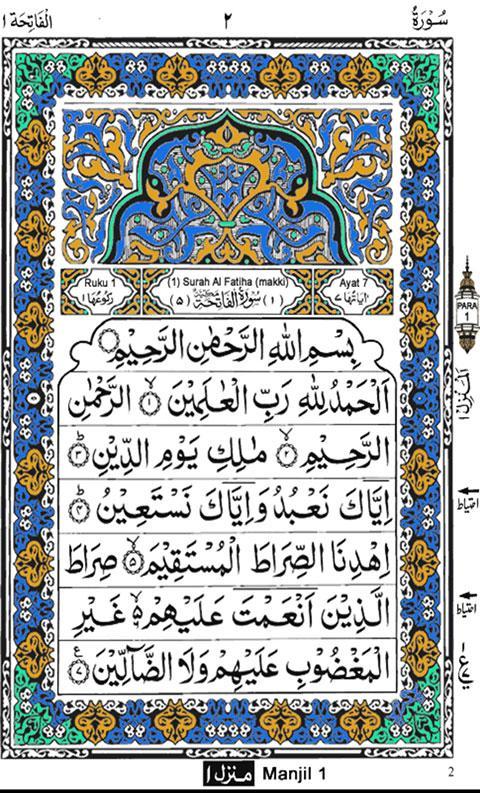 سُوْرَةُ
٢
اَلْفَاتِحَة ١
Ruku 1
(1) Surah Al Fatiha (makki)
Ayat 7
رُكُوْعُهَا ١
(١) سُوْرَةُ الْفَاتِحَةِ مَكِّيَّةٌ (٥)
اٰيَاتُهَا ٧
بِسْمِ اللهِ الرَّحْمٰنِ الرَّحِيْمِ
اَلْحَمْدُ لِلّٰهِ رَبِّ الْعٰلَمِيْنَ ۙ﴿١﴾ الرَّحْمٰنِ
الرَّحِيْمِ ۙ﴿٢﴾ مٰلِكِ يَوْمِ الدِّيْنِ ؕ﴿٣﴾
اِيَّاكَ نَعْبُدُ وَاِيَّاكَ نَسْتَعِيْنُ ؕ﴿٤﴾
اِهْدِنَا الصِّرَاطَ الْمُسْتَقِيْمَ ۙ﴿٥﴾ صِرَاطَ
الَّذِيْنَ اَنْعَمْتَ عَلَيْهِمْ ۙ۬ۦ غَيْرِ
الْمَغْضُوْبِ عَلَيْهِمْ وَلَا الضَّآلِّيْنَ ﴿٧﴾ ع
PARA
1
اَلْمَنْزِل ١
احتیاط
احتیاط
١
ع
٧
منزل ١
Manjil 1
2